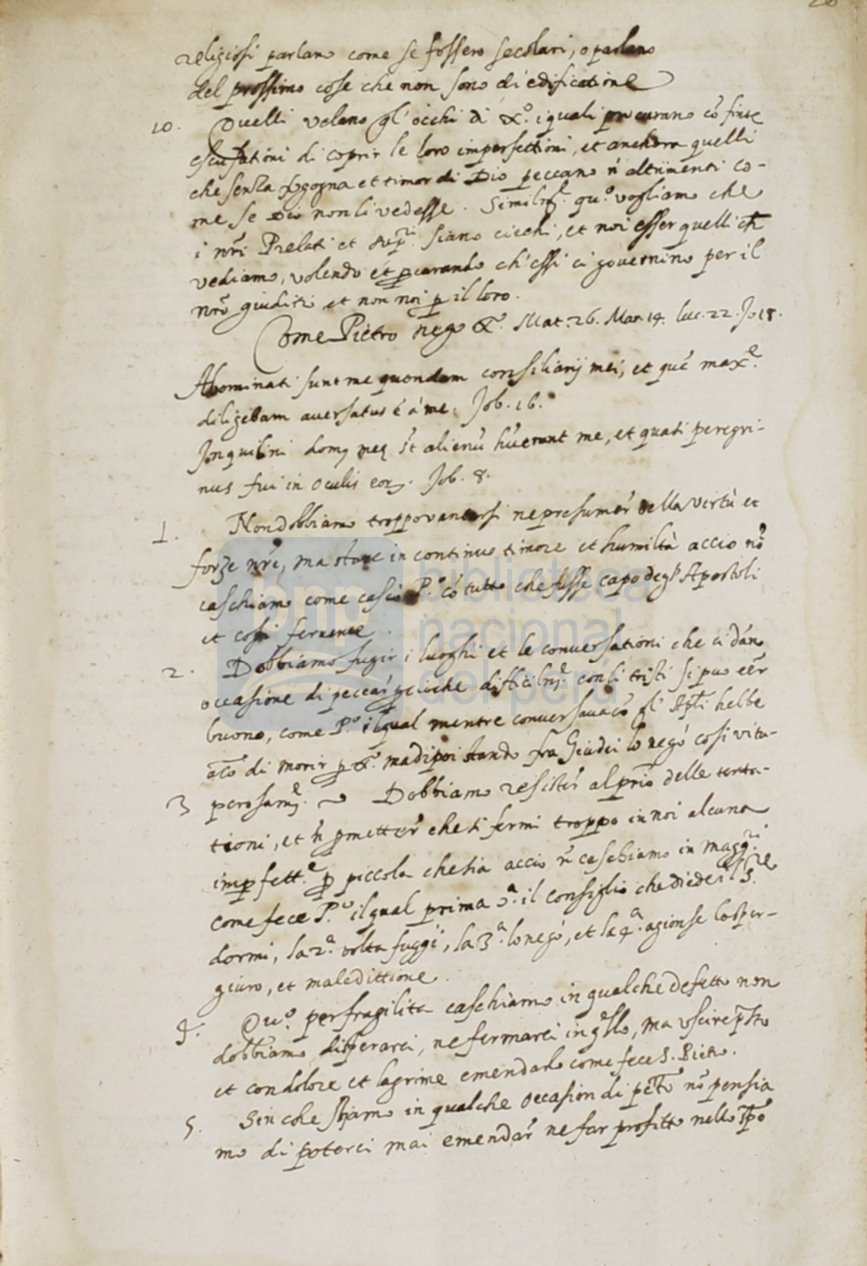 religiosi parlano come se fossero secolari, o parlano
del prossimo cose che non sono di edificatione
10. Quelli velano gl'occhi di X.º i quali procurano cõ finte
escusationi di coprir le loro imperfettioni, et anchora quelli
che senza et timor di Dio peccano nõ altrimenti co-
me se Dio non li vedesse. qũº vogliamo che
i nr̃i Prelati et siano ciechi, et noi esser quelli ch̃
vediamo, volendo et ꝓcurando ch'essi ci governino per il
nrõ giuditio et non noi ꝑ il loro.
Come Pietro nego X.º Mat. 26. Mar. 14. luc. 22. Jo 18.
Abominati sunt me quondam consiliarij mei, et quẽ maxe.
diligebam aversatus é á me. Job. 16.
Inquilini domꝰ meę alienũ me, et quasi peregri-
nus fui in oculis eoꝝ. Job. 8.
1. Non dobbiamo troppo vantarsi ne presumer della virtù et
forze nr̃e, ma stare in continuo timore et humiltà accio nõ
caschiamo come cascò P.º cõ tutto che fosse capo degli Apostoli
et cosi fervente.
2. Dobbiamo fugir i luoghi et le conversationi che ci dãno
occasione di peccar ꝑcioche con li tristi si puo eẽr
buono, come P.º il qual mentre conversava cõ gl' Apl̃i hebbe
aĩo di morir ꝑ X.º ma dipoi stando fra Giudei lo negò cosi vitu-
3 perosam.e Dobbiamo resister al prĩo delle tenta-
tioni, et nõ ꝑmetter che si fermi troppo in noi alcuna
imperfett.e ꝑ piccola che sia accio nõ caschiamo in magg.ri
come fece P.º il qual prima il consiglio che diede il S.re
dormi, la 2.ª volta fuggì, la 3.ª lo negò, et la 4.ª agionse lo sper-
giuro, et maledittione.
4. Quº. per fragilita caschiamo in qualche defetto non
dobbiamo disperarci, ne fermarci in q̃llo, ma uscire p̃sto
et con dolore et lagrime emendarlo come fece S. Pietro.
5. Sin che stiamo in qualche occasion di pctõ nõ pensia
mo di poterci mai emendar ne far profitto nello spõ
bnp biblioteca
nacional
del perú